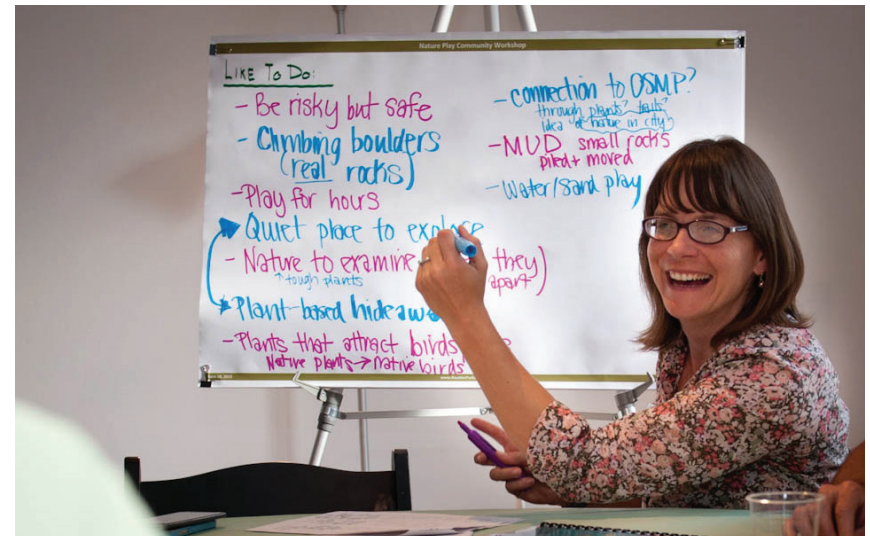 Nature Play Community Workshop
LIKE TO DO:
- Be risky but safe
- Climbing boulders
(real rocks)
- Play for hours
Quiet place to explore
- Nature to examine they
↑ tough plants apart)
Plant-based hideaw
- Plants that attract birds
Native plants → native birds
- connection to OSMP?
through plants? trails?
idea of nature in city?
- MUD small rocks
piled + moved
- Water/sand play